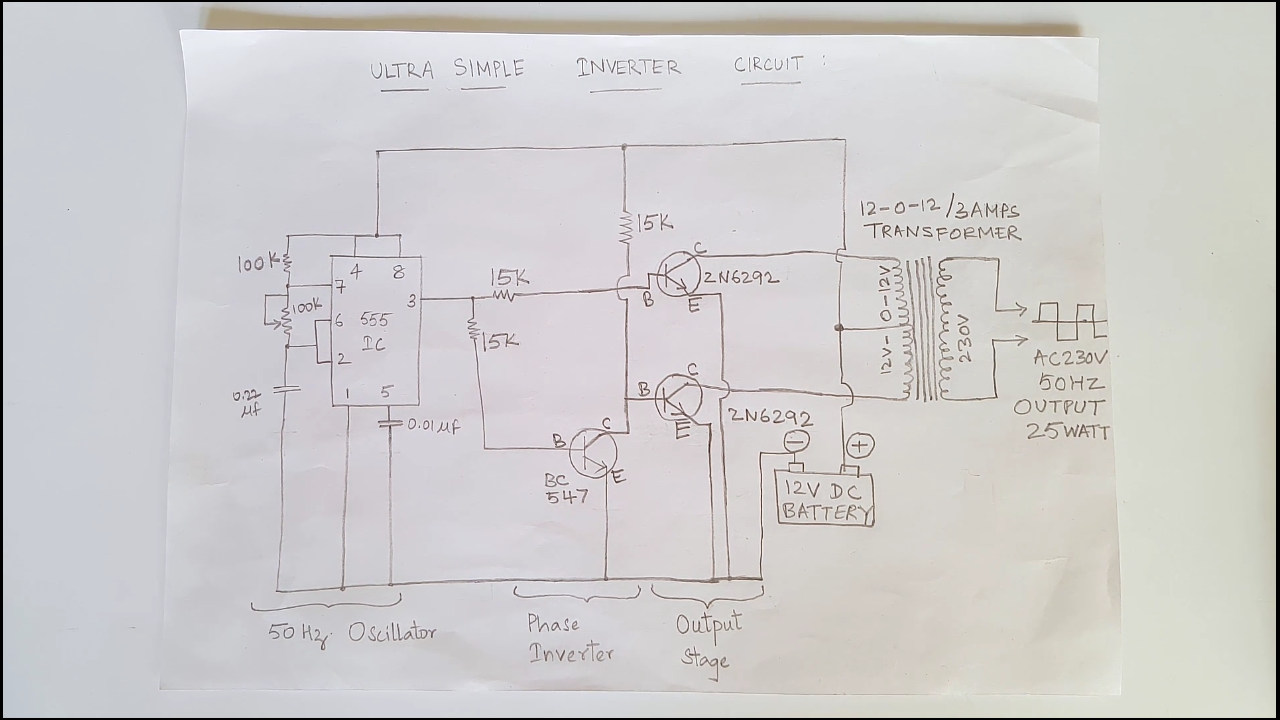 ULTRA SIMPLE INVERTER CIRCUIT :
12-0-12/3AMPS
TRANSFORMER
15K
100K
4 8
7
3
100K
6
555
IC
2
1 5
0.22
µf
0.01µf
15K
15K
B
C
E
2N6292
B
C
E
2N6292
B
C
E
BC
547
12V-0-12V
230V
AC230V
50HZ
OUTPUT
25WATT
- +
12V DC
BATTERY
50Hz Oscillator
Phase
Inverter
Output
Stage